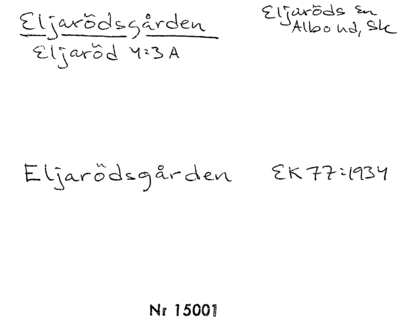 Eljarödsgården
Eljaröd 4:3 A
Eljaröds sn
Albo hd, Sk
Eljarödsgården EK 77:1934
Nr 15001